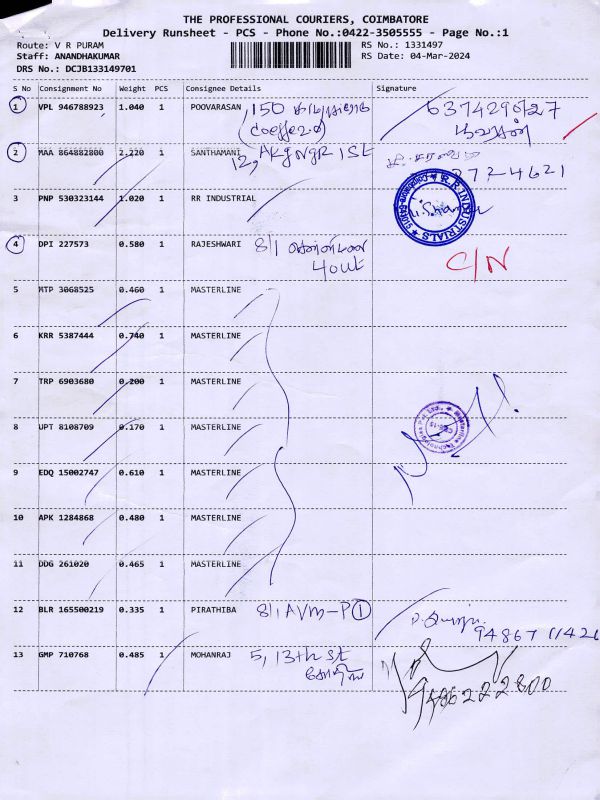 THE PROFESSIONAL COURIERS, COIMBATORE
Delivery Runsheet - PCS - Phone No.:0422-3505555 - Page No.:1
Route: V R PURAM
Staff: ANANDHAKUMAR
DRS No.: DCJB133149701
RS No.: 1331497
RS Date: 04-Mar-2024
S No Consignment No Weight PCS Consignee Details Signature
1 VPL 946788923 1.040 1 POOVARASAN, 150 6374290827
2 MAA 864882800 2.220 1 SANTHAMANI 12, AKG NGR 1 St
3 PNP 530323144 1.020 1 RR INDUSTRIAL
RR INDUSTRIALS
4 DPI 227573 0.580 1 RAJESHWARI 8/1 C/N
5 MTP 3068525 0.460 1 MASTERLINE
6 KRR 5387444 0.740 1 MASTERLINE
7 TRP 6903680 0.200 1 MASTERLINE
8 UPT 8108709 0.170 1 MASTERLINE
Masterline Technologies Pvt. Ltd.,
9 EDQ 15002747 0.610 1 MASTERLINE
10 APK 1284868 0.480 1 MASTERLINE
11 DDG 261020 0.465 1 MASTERLINE
12 BLR 165500219 0.335 1 PIRATHIBA 8/1 AVM-P 1
13 GMP 710768 0.485 1 MOHANRAJ 5, 13th st
9486222800